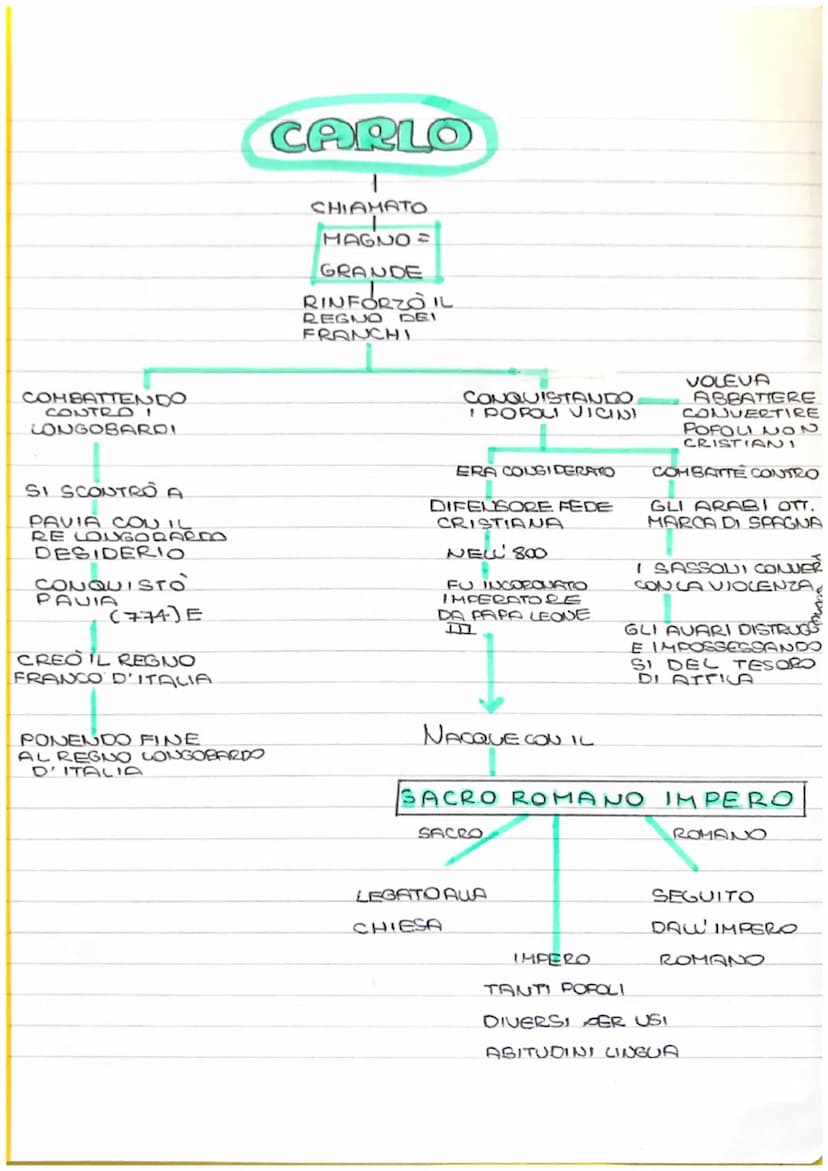 CARLO
CHIAMATO
MAGNO =
GRANDE
RINFORZÒ IL
REGNO DEI
FRANCHI
COMBATTENDO
CONTRO I
LONGOBARDI
SI SCONTRÒ A
PAVIA CON IL
RE LONGOBARDO
DESIDERIO
CONQUISTÒ
PAVIA
(774) E
CREÒ IL REGNO
FRANCO D'ITALIA
PONENDO FINE
AL REGNO LONGOBARDO
D'ITALIA
CONQUISTANDO
I POPOLI VICINI
VOLEVA
ABBATTERE
CONVERTIRE
POPOLI NON
CRISTIANI
ERA CONSIDERATO
DIFENSORE FEDE
CRISTIANA
NELL'800
FU INCORONATO
IMPERATORE
DA PAPA LEONE
III
COMBATTÉ CONTRO
GLI ARABI OTT.
MARCA DI SPAGNA
I SASSONI CONVER
CON LA VIOLENZA
GLI AVARI DISTRUGG
E IMPOSSESSANDO
SI DEL TESORO
DI ATTILA
NACQUE CON IL
SACRO ROMANO IMPERO
SACRO
LEGATO ALLA
CHIESA
IMPERO
TANTI POPOLI
DIVERSI PER USI
ABITUDINI LINGUA
ROMANO
SEGUITO
DALL'IMPERO
ROMANO